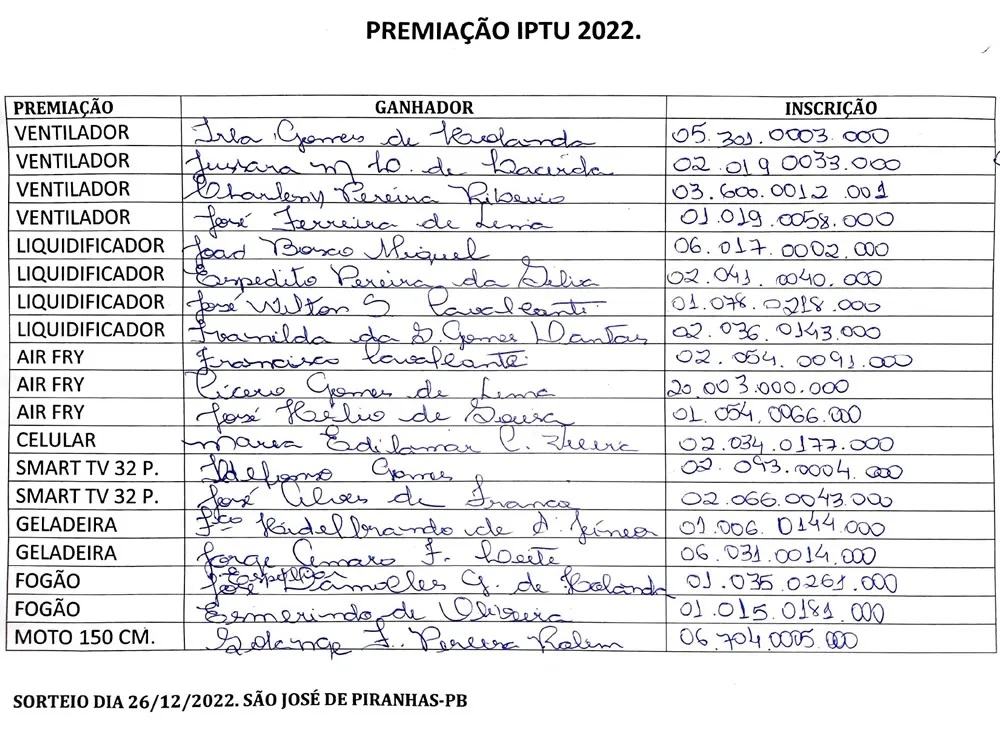 PREMIAÇÃO IPTU 2022.
PREMIAÇÃO GANHADOR INSCRIÇÃO
VENTILADOR Irla Gomes de Holanda 05.301.0003.000
VENTILADOR Jussara M D. de Lacerda 02.019 0033.000
VENTILADOR Charleny Pereira Ribeiro 03.600.0012.001
VENTILADOR José Ferreira de Lima 01.019.0058.000
LIQUIDIFICADOR Joao Bosco Miguel 06.017.0002.000
LIQUIDIFICADOR Espedito Pereira da Silva 02.041.0040.000
LIQUIDIFICADOR José Wilton S Cavalcanti 01.078.0218.000
LIQUIDIFICADOR Franilda da S. Gomes Dantas 02.036.0143.000
AIR FRY Francisco Cavalcante 02.054.0091.000
AIR FRY Cicero Gomes de Lima 20.003.000.000
AIR FRY José Hélio de Sousa 01.054.0066.000
CELULAR Maria Edilamar C. 02.034.0177.000
SMART TV 32 P. Ildefonso Gomes 02.093.0004.000
SMART TV 32 P. José Alves de Franca 02.066.0043.000
GELADEIRA Fco Hidelbrando de 01.006.0144.000
GELADEIRA Jorge Amaro F. Leite 06.031.0014.000
FOGÃO José Damocles G. de Holanda 01.035.0261.000
FOGÃO Esmerindo de Oliveira 01.015.0181.000
MOTO 150 CM. Solange F. Pereira Rolim 06.704.0005.000
SORTEIO DIA 26/12/2022. SÃO JOSÉ DE PIRANHAS-PB